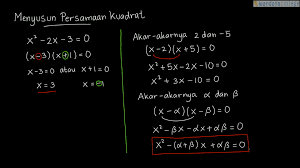 Menyusun Persamaan Kuadrat
x² - 2x - 3 = 0
(x - 3)(x + 1) = 0
x - 3 = 0 atau x + 1 = 0
x = 3 x = -1
Akar-akarnya 2 dan -5
(x - 2)(x + 5) = 0
x² + 5x - 2x - 10 = 0
x² + 3x - 10 = 0
Akar-akarnya α dan β
(x - α)(x - β) = 0
x² - βx - αx + αβ = 0
x² - (α+β)x + αβ = 0